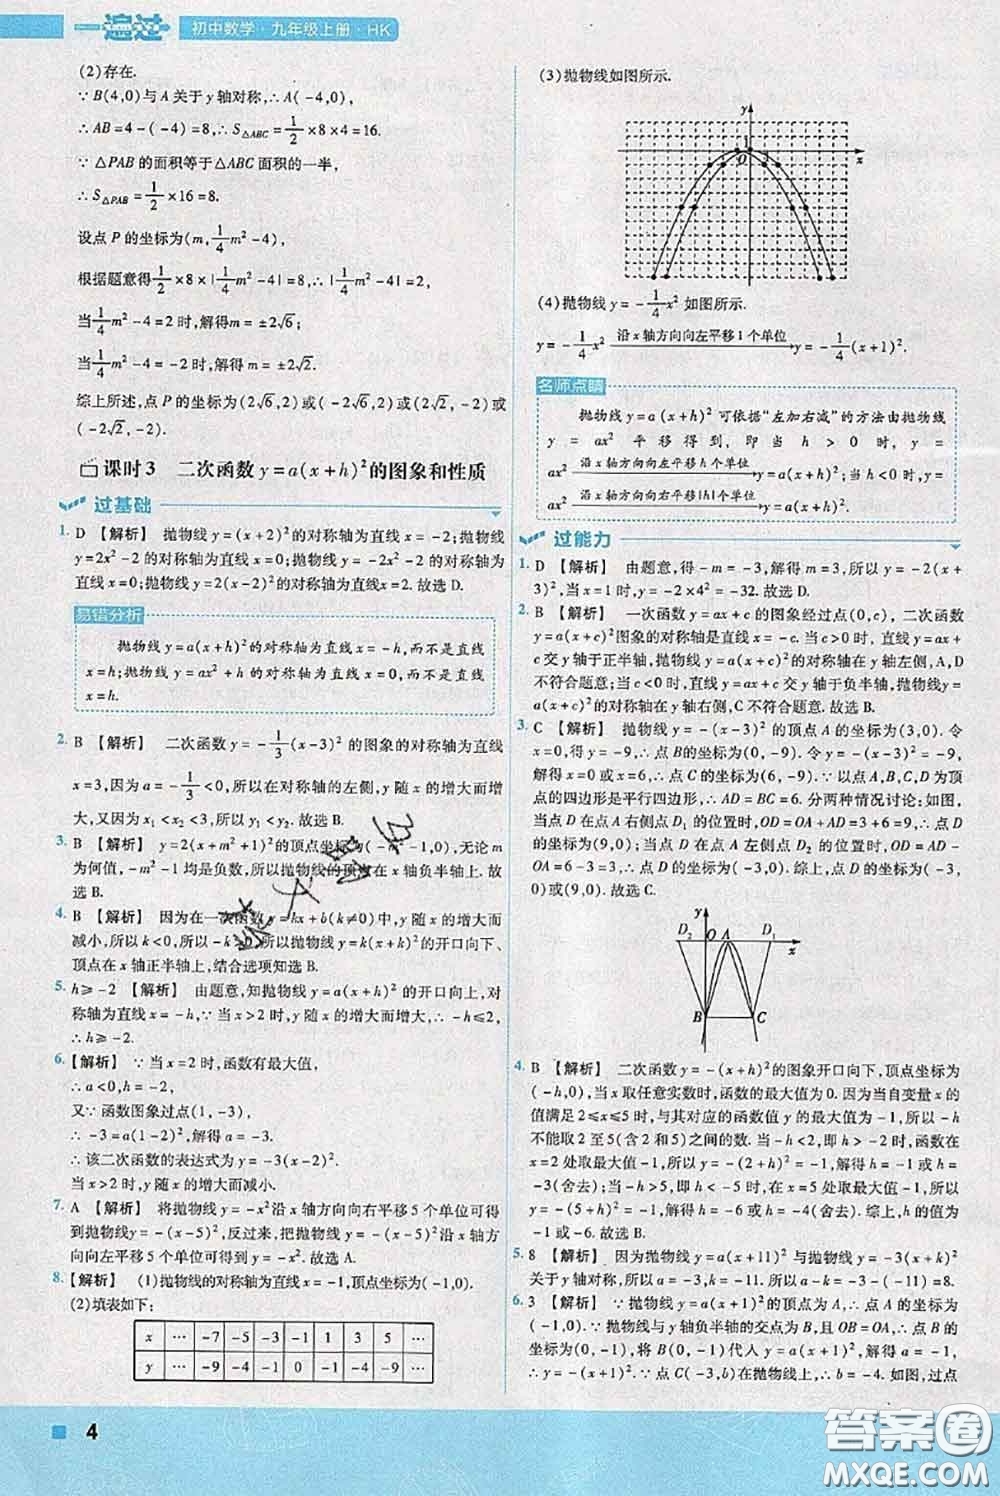 一遍过 初中数学·九年级上册·HK
(2)存在.
∵B(4,0)与A关于y轴对称,∴A(-4,0),
∴AB=4-(-4)=8,∴S△ABC=1/2×8×4=16.
∵△PAB的面积等于△ABC面积的一半,
∴S△PAB=1/2×16=8.
设点P的坐标为(m,1/4m²-4),
根据题意得1/2×8×|1/4m²-4|=8,∴|1/4m²-4|=2,
当1/4m²-4=2时,解得m=±2√6;
当1/4m²-4=-2时,解得m=±2√2.
综上所述,点P的坐标为(2√6,2)或(-2√6,2)或(2√2,-2)或
(-2√2,-2).
课时3 二次函数y=a(x+h)²的图象和性质
过基础
1. D 【解析】 抛物线y=(x+2)²的对称轴为直线x=-2;抛物线
y=2x²-2的对称轴为直线x=0;抛物线y=-2x²-2的对称轴为
直线x=0;抛物线y=2(x-2)²的对称轴为直线x=2.故选D.
易错分析
抛物线y=a(x+h)²的对称轴为直线x=-h,而不是直线
x=h;抛物线y=ax²+h的对称轴为直线x=0,而不是直线
x=h.
2. B 【解析】 二次函数y=-1/3(x-3)²的图象的对称轴为直线
x=3,因为a=-1/3<0,所以在对称轴的左侧,y随x的增大而增
大,又因为x₁<x₂<3,所以y₁<y₂.故选B.
3. B 【解析】 y=2(x+m²+1)²的顶点坐标为(-m²-1,0),无论m
为何值,-m²-1均是负数,所以抛物线的顶点在x轴负半轴上.故
选B.
4. B 【解析】 因为在一次函数y=kx+b(k≠0)中,y随x的增大而
减小,所以k<0,所以-k>0,所以抛物线y=k(x+k)²的开口向下、
顶点在x轴正半轴上,结合选项知选B.
5. h≥-2 【解析】 由题意,知抛物线y=a(x+h)²的开口向上,对
称轴为直线x=-h,∵当x>2时,y随x的增大而增大,∴-h≤2,
∴h≥-2.
6. 【解析】 ∵当x=2时,函数有最大值,
∴a<0,h=-2,
又∵函数图象过点(1,-3),
∴-3=a(1-2)²,解得a=-3.
∴该二次函数的表达式为y=-3(x-2)²,
当x>2时,y随x的增大而减小.
7. A 【解析】 将抛物线y=-x²沿x轴方向向右平移5个单位可得
到抛物线y=-(x-5)²,反过来,把抛物线y=-(x-5)²沿x轴方
向向左平移5个单位可得到y=-x².故选A.
8. 【解析】 (1)抛物线的对称轴为直线x=-1,顶点坐标为(-1,0).
(2)填表如下:
x … -7 -5 -3 -1 1 3 5 …
y … -9 -4 -1 0 -1 -4 -9 …
(3)抛物线如图所示.
y
1
O x
(4)抛物线y=-1/4x²如图所示.
y=-1/4x² 沿x轴方向向左平移1个单位 y=-1/4(x+1)².
名师点睛
抛物线y=a(x+h)²可依据“左加右减”的方法由抛物线
y=ax²平移得到,即当h>0时,
ax² 沿x轴方向向左平移h个单位 y=a(x+h)²;当h<0时,y=
ax² 沿x轴方向向右平移|h|个单位 y=a(x+h)².
过能力
1. D 【解析】 由题意,得-m=-3,解得m=3,所以y=-2(x+
3)²,当x=1时,y=-2×4²=-32.故选D.
2. B 【解析】 一次函数y=ax+c的图象经过点(0,c),二次函数
y=a(x+c)²图象的对称轴是直线x=-c.当c>0时,直线y=ax+
c交y轴于正半轴,抛物线y=a(x+c)²的对称轴在y轴左侧,A,D
不符合题意;当c<0时,直线y=ax+c交y轴于负半轴,抛物线y=
a(x+c)²的对称轴在y轴右侧,C不符合题意.故选B.
3. C 【解析】 抛物线y=-(x-3)²的顶点A的坐标为(3,0).令
x=0,得y=-9,∴点B的坐标为(0,-9).令y=-(x-3)²=-9,
解得x=0或x=6,∴点C的坐标为(6,-9).∵以点A,B,C,D为顶
点的四边形是平行四边形,∴AD=BC=6.分两种情况讨论:如图,
当点D在点A右侧点D₁的位置时,OD=OA+AD=3+6=9,∴点D
的坐标为(9,0);当点D在点A左侧点D₂的位置时,OD=AD-
OA=6-3=3,∴点D的坐标为(-3,0).综上,点D的坐标为(-3,
0)或(9,0).故选C.
y
D₂ O A D₁ x
B C
4. B 【解析】 二次函数y=-(x+h)²的图象开口向下,顶点坐标为
(-h,0),当x取任意实数时,函数的最大值为0.因为当自变量x的
值满足2≤x≤5时,与其对应的函数值y的最大值为-1,所以-h
不能取2至5(含2和5)之间的数.当-h<2,即h>-2时,函数在
x=2处取最大值-1,所以y=-(2+h)²=-1,解得h=-1或h=
-3(舍去);当-h>5,即h<-5时,在x=5处取最大值-1,所以
y=-(5+h)²=-1,解得h=-6或h=-4(舍去).综上,h的值为
-1或-6.故选B.
5. 8 【解析】 因为抛物线y=a(x+11)²与抛物线y=-3(x+k)²
关于y轴对称,所以a=-3,k=-11,所以a-k=-3-(-11)=8.
6. 3 【解析】 ∵抛物线y=a(x+1)²的顶点为A,∴点A的坐标为
(-1,0).∵抛物线与y轴负半轴的交点为B,且OB=OA,∴点B的坐标为
(0,-1),将B(0,-1)代入y=a(x+1)²,解得a=-1,
∴y=-(x+1)².∵点C(-3,b)在抛物线上,∴b=-4.如图,过点
4
答案圈
MXQE.COM